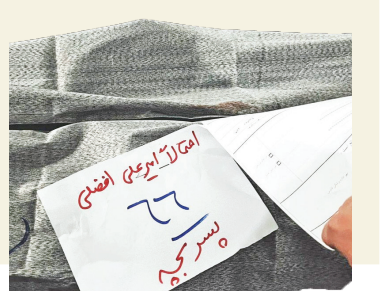 احتمالاً امیرعلی افضلی
۲۲
پسر بچه